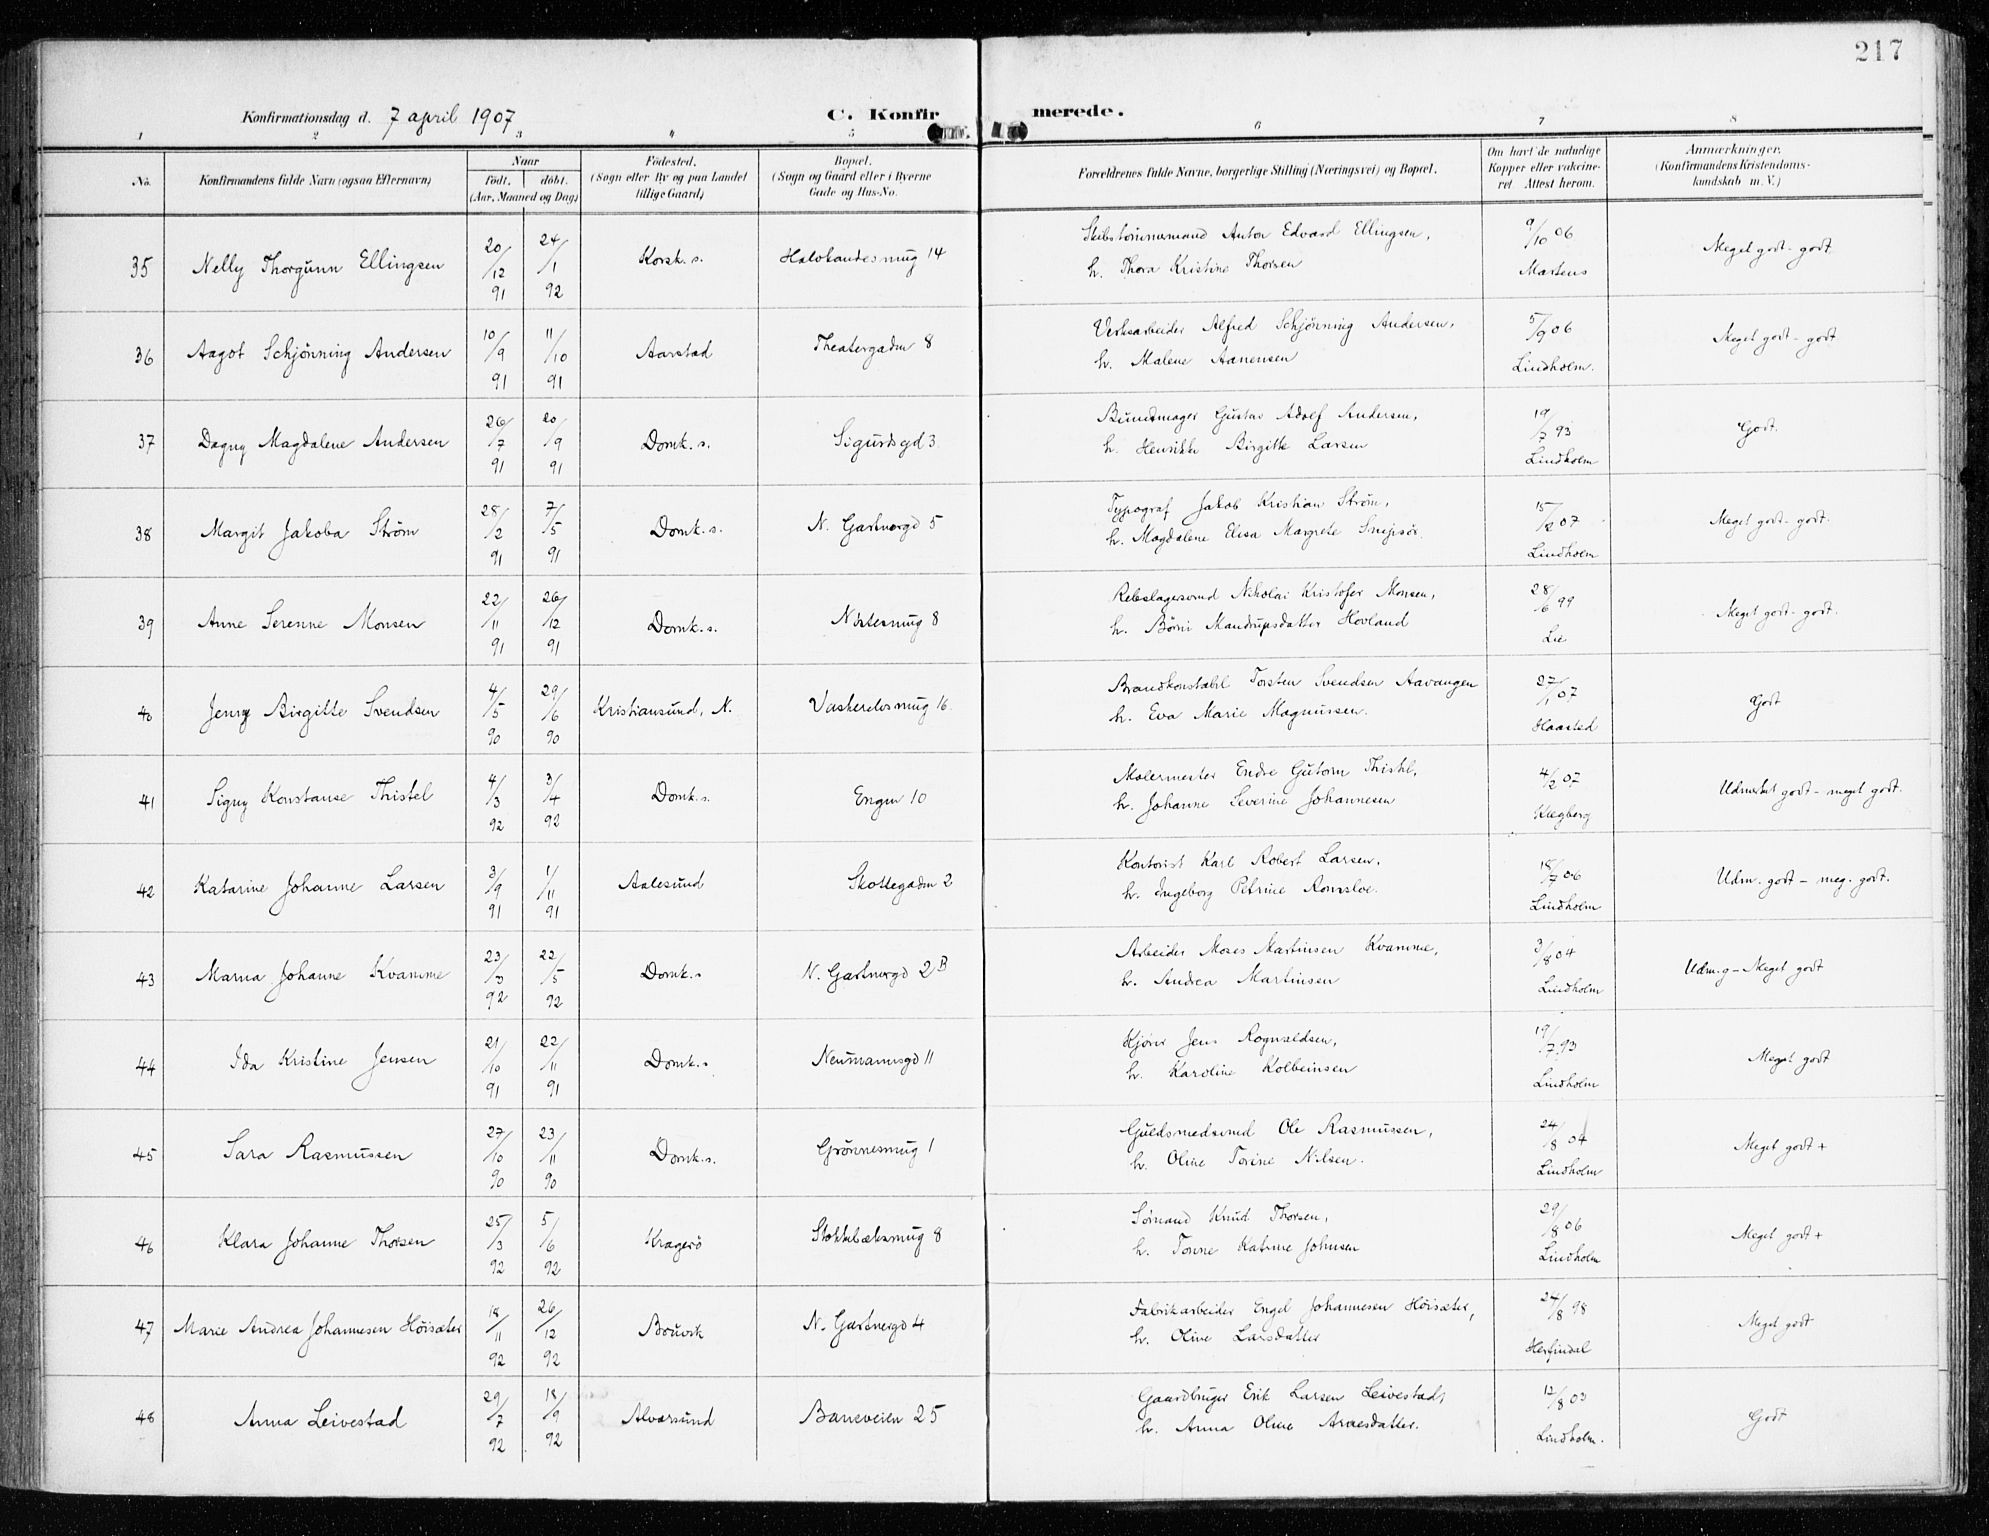 217
Konfirmationsdag d. 7 april 1907
C. Konfirmerede.
1 2 3 4 5 6 7 8
No.
Konfirmandens fulde Navn (ogsaa Efternavn)
Naar
født. døbt.
(Aar, Maaned og Dag)
Fødested.
(Sogn eller By og paa Landet
tillige Gaard)
Bopæl.
(Sogn og Gaard eller i Byerne
Gade og Hus-No.
Forældrenes fulde Navne, borgerlige Stilling (Næringsvei) og Bopæl.
Om havt de naturlige
Kopper eller vakcine-
ret. Attest herom.
Anmærkninger.
(Konfirmandens Kristendoms-
kundskab m. V.)
35 Nelly Thorgunn Ellingsen 20/12 91 24/1 92 Korsk. s. 14
Anton Edvard Ellingsen,
h. Thora Kristine Thorsen
9/10 06 Martens
Meget godt - godt
36 Aagot Schjönning Andersen 10/9 91 11/10 91 Aarstad Theatergaden 8
Verksarbeider Alfred Schjönning Andersen,
h. Malene Aanensen
5/9 06 Lindholm.
Meget godt - godt
37 Dagny Magdalene Andersen 26/7 91 20/9 91 Domk. s. Sigurdsgd 3
Buntmager Gustav Adolf Andersen,
h. Henrikke Birgitte Larsen
19/7 93 Lindholm
Godt.
38 Margit Jakoba Ström 28/2 91 7/5 91 Domk. s. N. Gartnergd 5
Typograf Jakob Kristian Ström,
h. Magdalene Elisa Margrete
15/2 07 Lindholm
Meget godt - godt.
39 Anne Serenne Monsen 22/11 91 26/12 91 Domk. s. Nöstesmug 8
Rebslagersvend Nikolai Kristofer Monsen,
h. Mandrupsdatter Hovland
28/6 99 Lie
Meget godt - godt.
40 Jenny Birgitte Svendsen 4/5 90 29/6 90 Kristiansund, N. 16.
Brandkonstabel Torsten Svendsen Aavangen
h. Eva Marie Magnussen.
27/1 07 Haasted
Godt
41 Signy Konstanse Thistel 4/3 92 3/4 92 Domk. s. Engen 10
Malermester Endre Gutorm Thistel,
h. Johanne Severine Johannesen
4/2 07 Klegberg
Udmerket godt - meget godt.
42 Katarine Johanne Larsen 3/9 91 1/11 91 Aalesund Skottegaden 2
Kontorist Karl Robert Larsen,
h. Ingeborg Petrine Romsloe.
18/7 06 Lindholm
Udm. godt - meg. godt.
43 Marna Johanne Kvamme 23/3 92 22/5 92 Domk. s N. Gartnergd 2 B
Arbeider Moses Martinsen Kvamme,
h. Andrea Martinsen
3/8 04 Lindholm
Udm. g - Meget godt
44 Ida Kristine Jensen 21/10 91 22/11 91 Domk. s Neumannsgd 11
Kjörer Jens Rognaldsen,
h. Karoline Kolbeinsen
19/7 93 Lindholm
Meget godt
45 Sara Rasmussen 27/10 90 23/11 90 Domk. s. Grönnesmug 1
Guldsmedsvend Ole Rasmussen,
h. Oline Torine Nilsen.
24/8 04 Lindholm
Meget godt +
46 Klara Johanne Thorsen 25/3 92 5/6 92 Kragerö 8
Sömand Knud Thorsen,
h. Tonne Katrine Johnsen
29/8 06 Lindholm
Meget godt +
47 Marie Andrea Johannesen Höisæter 18/11 92 26/12 92 Bouvik N. Gartnergd 4
Fabrikarbeider Engel Johannesen Höisæter,
h. Oline Larsdatter
24/8 98 Herfindal
Meget godt
48 Anna Leivestad 29/7 92 18/9 92 Alversund Baneveien 25
Gaardbruger Erik Larsen Leivestad,
h. Anna Oline Arnesdatter.
12/8 03 Lindholm.
Godt